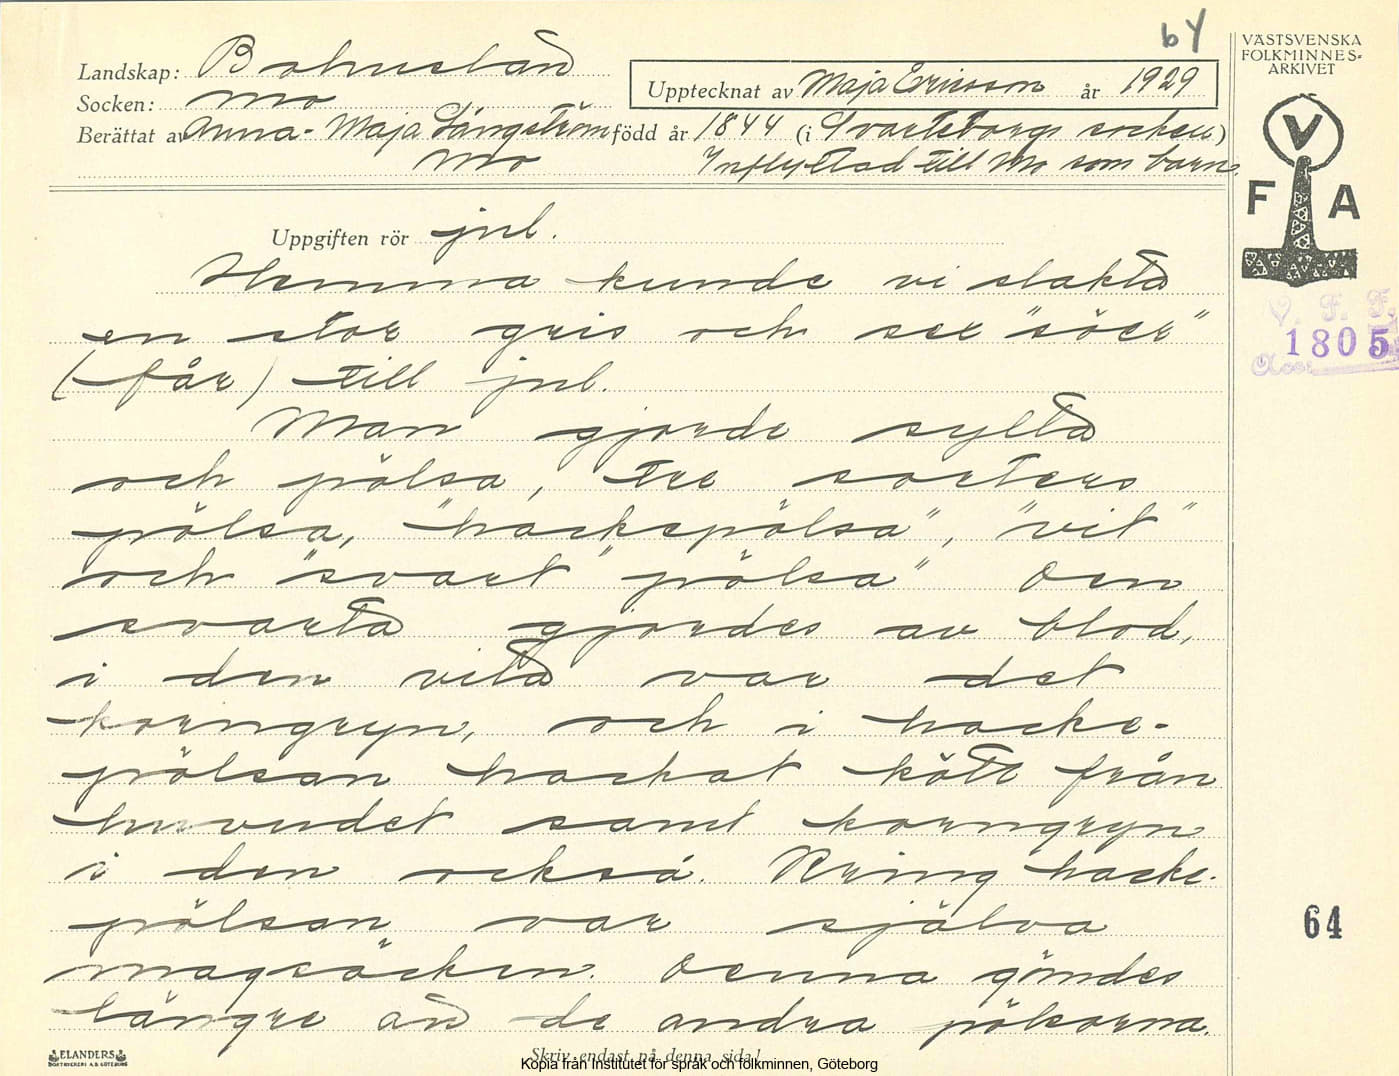 64
VÄSTSVENSKA
FOLKMINNES-
ARKIVET
Landskap: Bohuslän
Upptecknat av Maja Ericsson år 1929
Socken: Mo
Berättat av Anna-Maja Långström född år 1844 (i Svarteborgs socken)
Mo Inflyttad till Mo som barn.
V
F A
Uppgiften rör jul.
Hemma kunde vi slakta
en stor gris och sex "söer"
(får) till jul.
Man gjorde sylta
och pölsa, tre sorters
pölsa, "hackepölsa", "vit"
och "svart" pölsa" Den
svarta gjordes av blod,
i den vita var det
korngryn, och i hacke-
pölsan hackat kött från
huvudet samt korngryn
i den också. Kring hacke-
pölsan var själva
magsäcken. Denna gömdes
längre än de andra pölsorna.
V. F. F.
1805
Acc:
64
ELANDERS
BOKTRYCKERI A.B. GÖTEBORG
Skriv endast på denna sida!
Kopia från Institutet för språk och folkminnen, Göteborg